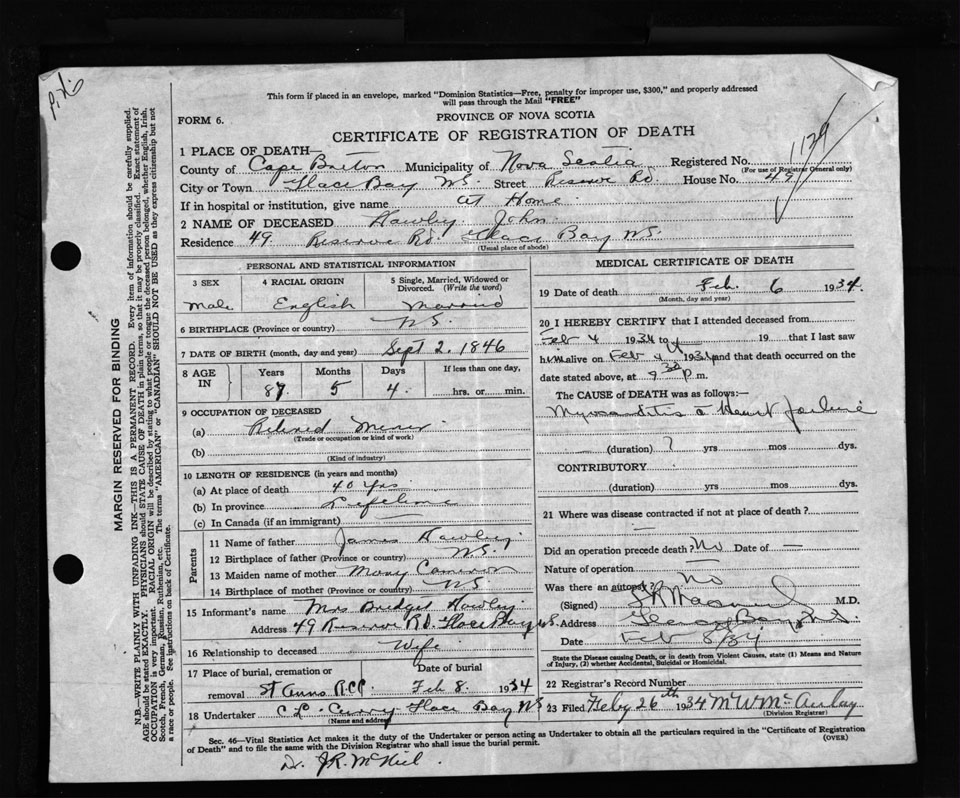 This form if placed in an envelope, marked "Dominion Statistics—Free, penalty for improper use, $300," and properly addressed
will pass through the Mail "FREE"
FORM 6.
PROVINCE OF NOVA SCOTIA
CERTIFICATE OF REGISTRATION OF DEATH
1129
1 PLACE OF DEATH—
County of Cape Breton Municipality of Nova Scotia Registered No.
(For use of Registrar General only)
City or Town Glace Bay NS. Street Reserve Rd. House No. 49
If in hospital or institution, give name at Home
2 NAME OF DECEASED Hawley John
Residence 49. Reserve Rd. Glace Bay NS.
(Usual place of abode)
PERSONAL AND STATISTICAL INFORMATION
3 SEX 4 RACIAL ORIGIN 5 Single, Married, Widowed or
Divorced. (Write the word)
Male English Married
6 BIRTHPLACE (Province or country) NS.
7 DATE OF BIRTH (month, day and year) Sept 2. 1846
8 AGE IN Years Months Days If less than one day,
87 5 4. hrs. or min.
9 OCCUPATION OF DECEASED
(a) Retired Miner
(Trade or occupation or kind of work)
(b)
(Kind of industry)
10 LENGTH OF RESIDENCE (in years and months)
(a) At place of death 40 Yrs
(b) In province Lifetime
(c) In Canada (if an immigrant) —
Parents
11 Name of father James Hawley
12 Birthplace of father (Province or country) NS.
13 Maiden name of mother Mary Cameron
14 Birthplace of mother (Province or country) NS
15 Informant's name Mrs Bridget Hawley
Address 49 Reserve Rd. Glace Bay NS.
16 Relationship to deceased Wife
17 Place of burial, cremation or Date of burial
removal St Anns R.C.C. Feb 8. 1934
18 Undertaker C. L. Curry Glace Bay NS
(Name and address)
MEDICAL CERTIFICATE OF DEATH
19 Date of death Feb. 6 1934.
(Month, day and year)
20 I HEREBY CERTIFY that I attended deceased from
Feb 4 1934 to — 19 that I last saw
him alive on Feb 4 1934 and that death occurred on the
date stated above, at 9 30 p m.
The CAUSE of DEATH was as follows:—
Myocarditis c Heart failure
(duration) ? yrs mos dys.
CONTRIBUTORY
(duration) yrs mos dys.
21 Where was disease contracted if not at place of death?
—
Did an operation precede death? No Date of —
Nature of operation —
Was there an autopsy? No
(Signed) M.D.
Address Glace Bay N.S.
Date Feb 8/34
State the Disease causing Death, or in death from Violent Causes, state (1) Means and
Nature of Injury, (2) whether Accidental, Suicidal or Homicidal.
22 Registrar's Record Number
23 Filed Feby 26th 1934 M W McAulay
(Division Registrar)
Sec. 46—Vital Statistics Act makes it the duty of the Undertaker or person acting as Undertaker to obtain all the particulars required in the "Certificate of Registration
of Death" and to file the same with the Division Registrar who shall issue the burial permit.
(OVER)
Dr. J.R. McNeil.
MARGIN RESERVED FOR BINDING
N.B.—WRITE PLAINLY WITH UNFADING INK—THIS IS A PERMANENT RECORD. Every item of information should be carefully supplied.
AGE should be stated EXACTLY. PHYSICIANS should STATE CAUSE OF DEATH in plain terms, so that it may be properly classified. Exact statement of
OCCUPATION is very important. RACIAL ORIGIN will be described by stating to what people or tongue the deceased person belonged, whether English, Irish,
Scotch, French, German, Russian, Ruthenian, etc. The terms "AMERICAN" or "CANADIAN" SHOULD NOT BE USED as they express citizenship but not
a race or people. See instructions on back of Certificate.